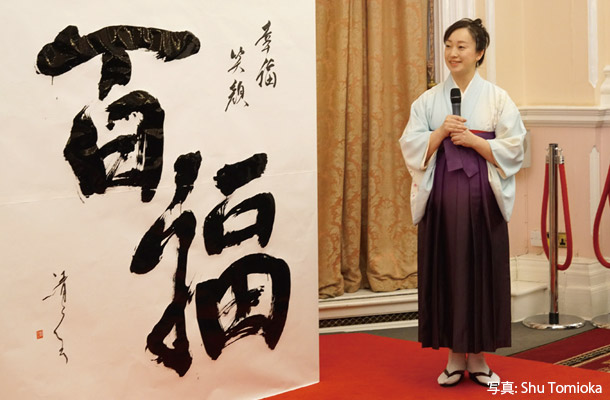 幸福
笑顔
百福
写真: Shu Tomioka